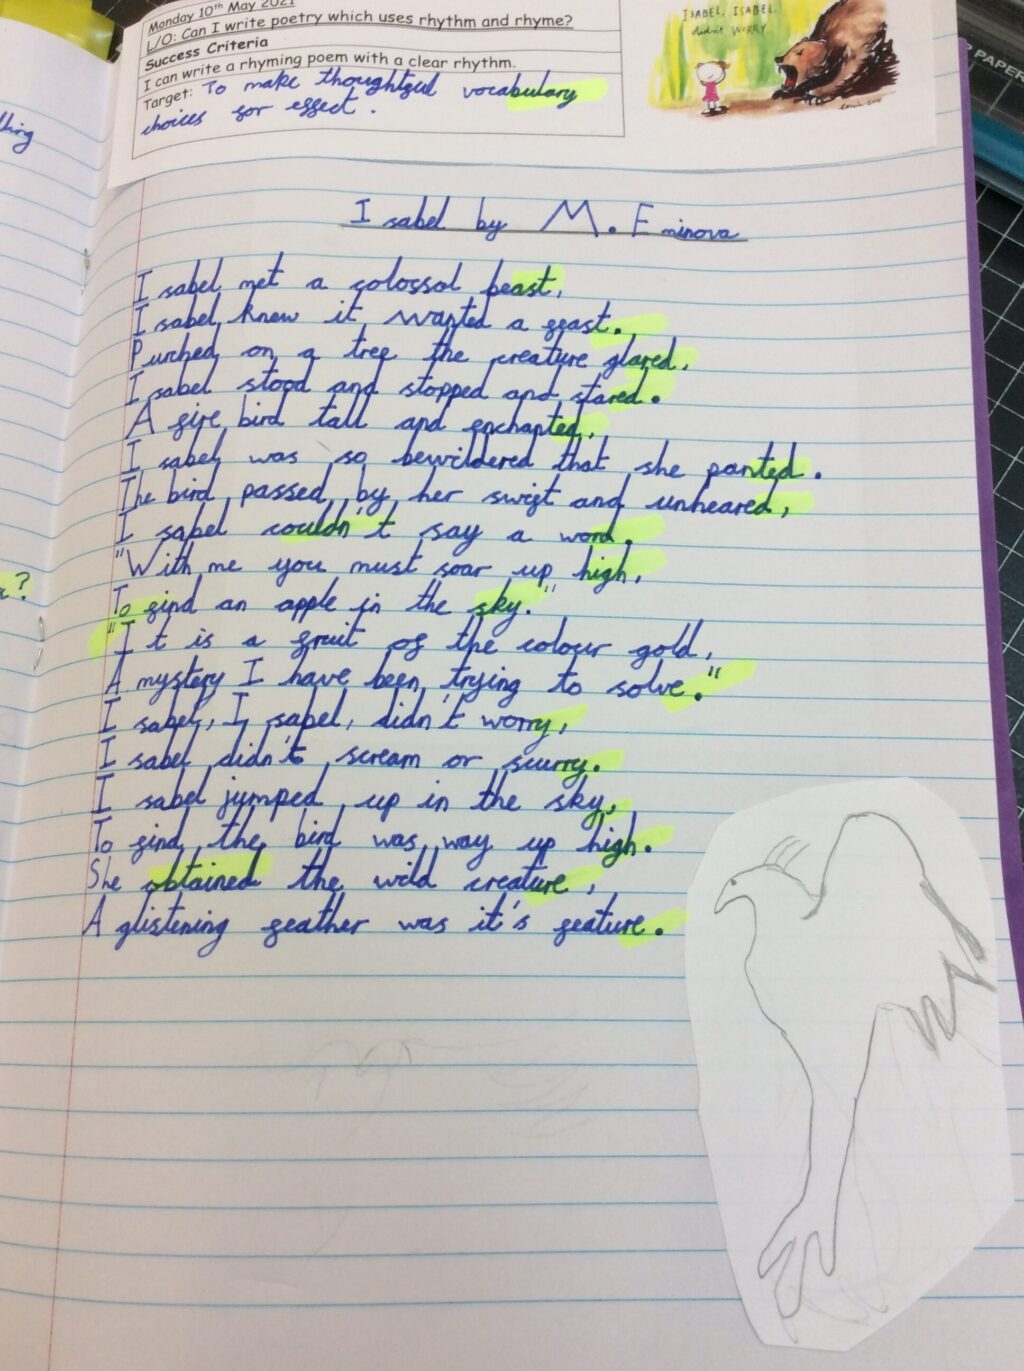 Monday 10th May 2021
L/O: Can I write poetry which uses rhythm and rhyme?
Success Criteria
I can write a rhyming poem with a clear rhythm.
Target: To make thoughtful vocabulary
choices for effect.
ISABEL, ISABEL
didn't WORRY
Isabel by M. Eminova
Isabel met a colossol beast,
Isabel knew it wanted a feast.
Purched on a tree the creature glared,
Isabel stood and stopped and stared.
A fire bird tall and enchanted,
Isabel was so bewildered that she panted.
The bird passed by her swift and unheared,
Isabel couldn't say a word.
"With me you must soar up high,
To find an apple in the sky."
"It is a fruit of the colour gold,
A mystery I have been trying to solve."
Isabel, Isabel, didn't worry,
Isabel didn't scream or scurry.
Isabel jumped up in the sky,
To find the bird was way up high.
She obtained the wild creature,
A glistening feather was it's feature.
thing
?
PAPER